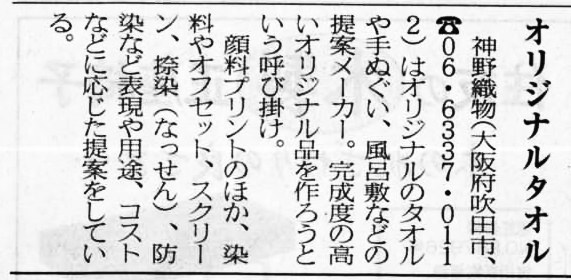 オリジナルタオル
神野織物(大阪府吹田市
☎06・6337・011
2)はオリジナルのタオル
や手ぬぐい、風呂敷などの
提案メーカー。完成度の高
いオリジナル品を作ろうと
いう呼び掛け。
顔料プリントのほか、染
料やオフセット、スクリー
ン、捺染(なっせん)、防
染など表現や用途、コスト
などに応じた提案をしてい
る。